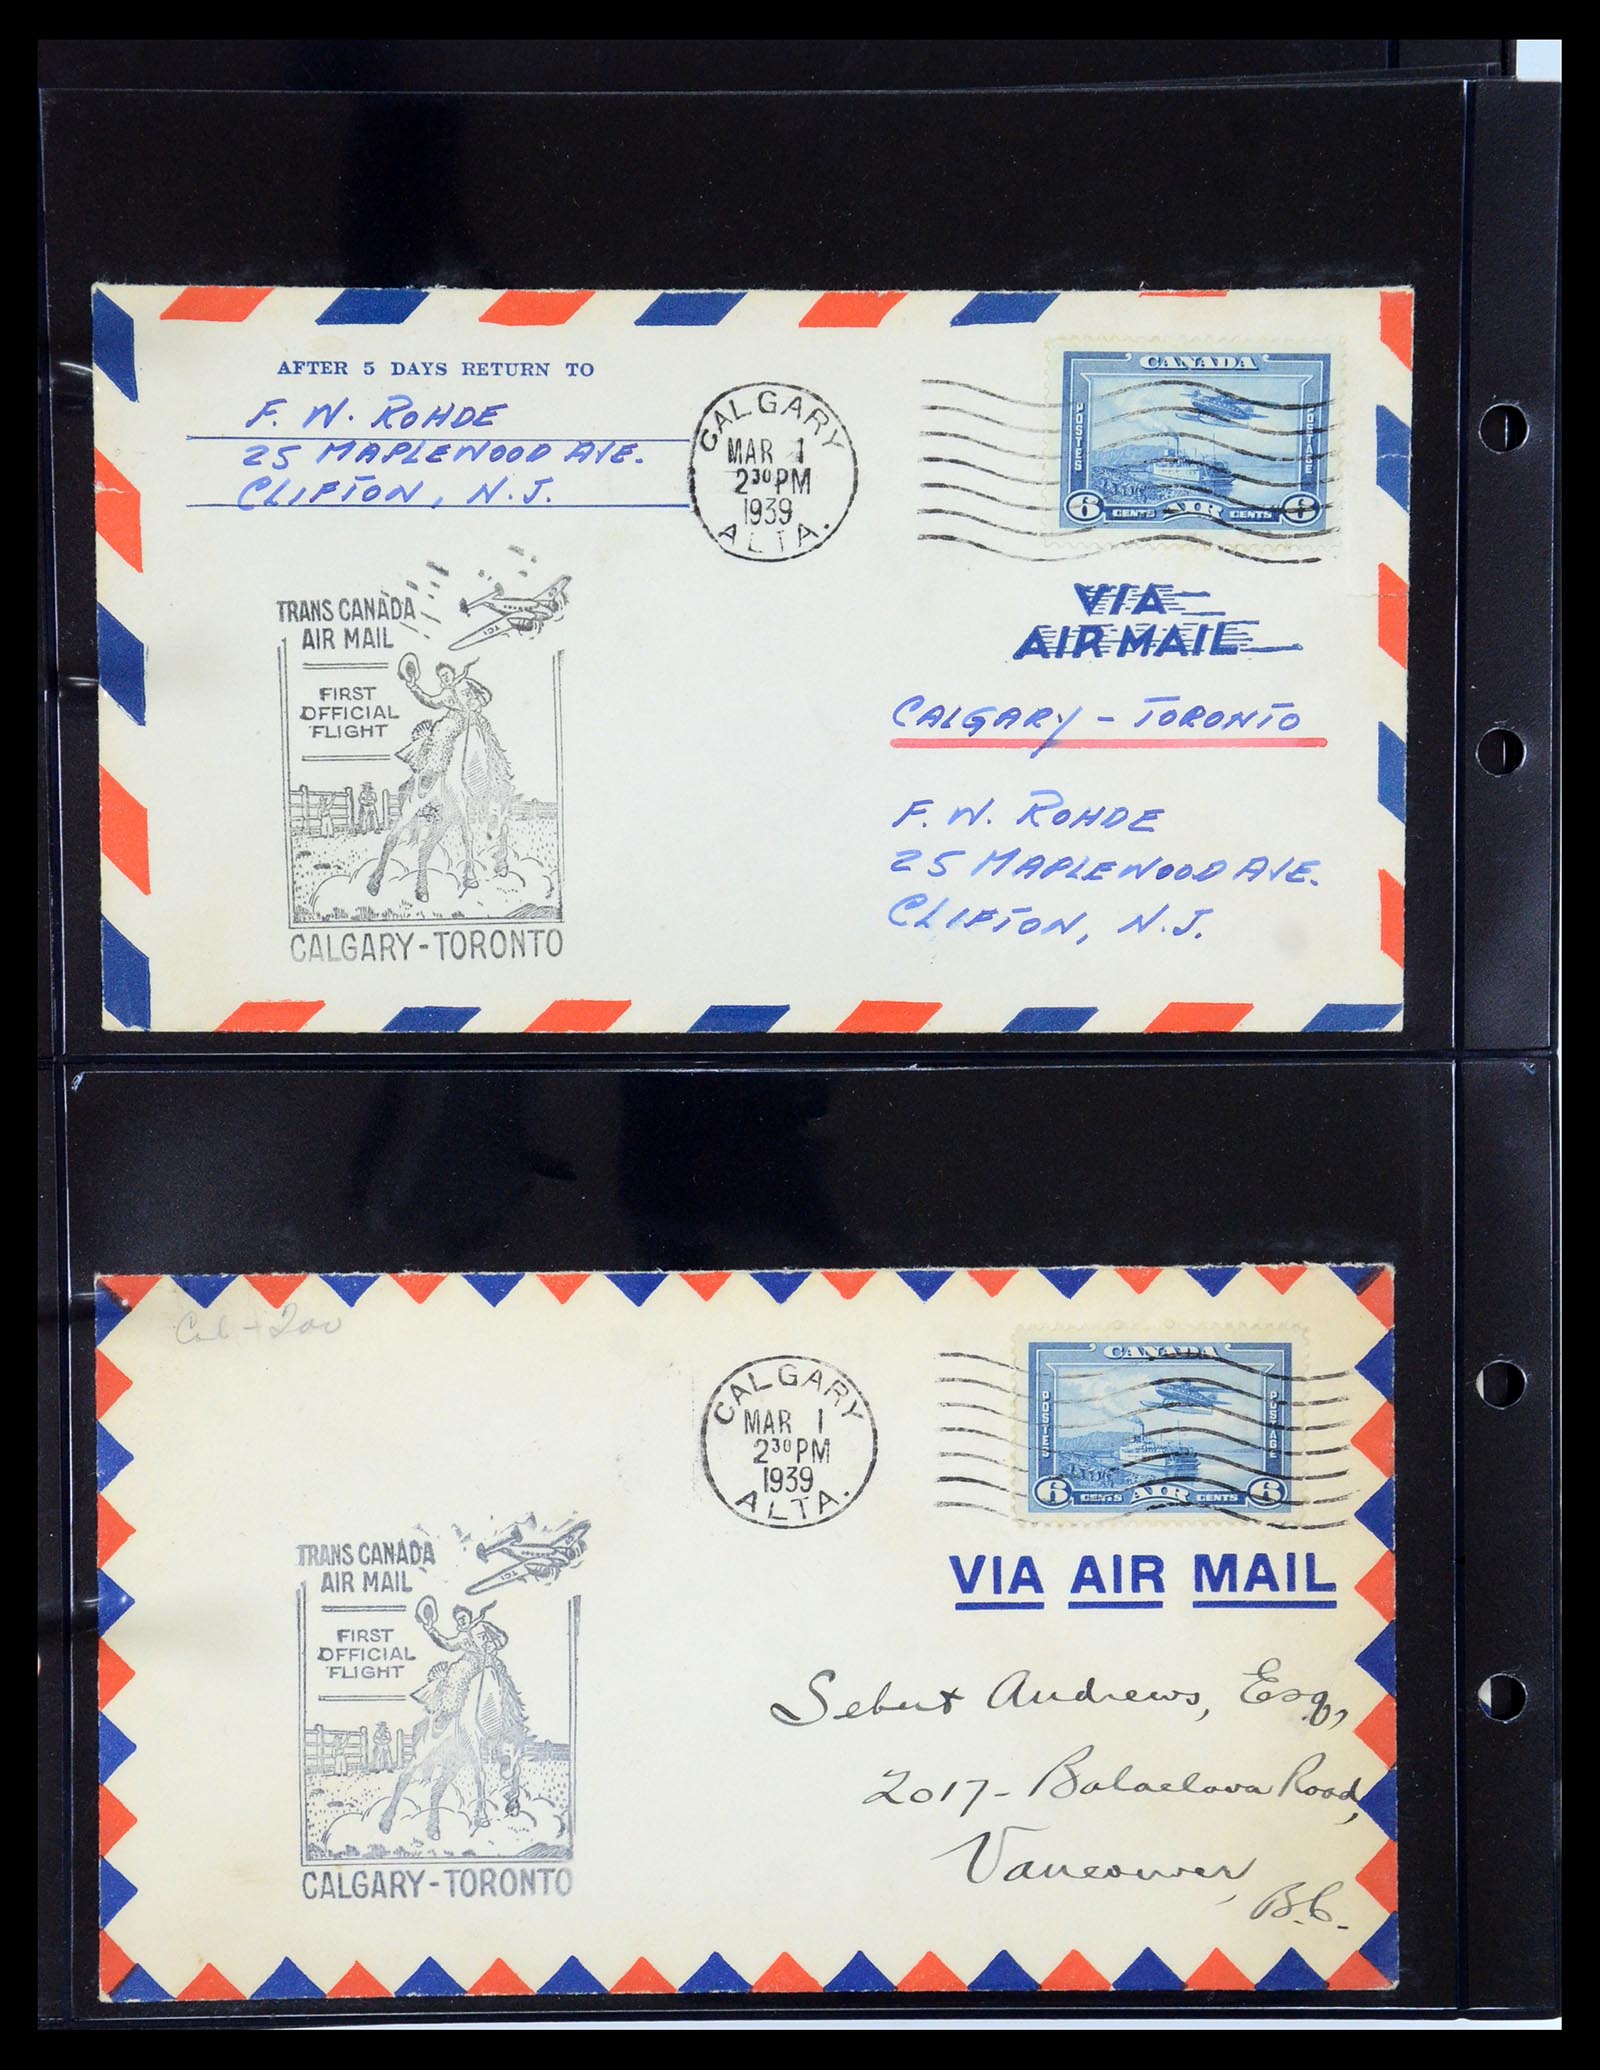 AFTER 5 DAYS RETURN TO
F. W. ROHDE
25 MAPLEWOOD AVE.
CLIFTON, N.J.
CALGARY
MAR 1
2 30 PM
1939
ALTA.
CANADA
POSTES
POSTAGE
6 CENTS AIR CENTS 6
VIA
AIR MAIL
TRANS CANADA
AIR MAIL
TCA
FIRST
OFFICIAL
FLIGHT
CALGARY-TORONTO
CALGARY - TORONTO
F. W. ROHDE
25 MAPLEWOOD AVE.
CLIFTON, N.J.
CALGARY
MAR 1
2 30 PM
1939
ALTA.
CANADA
POSTES
POSTAGE
6 CENTS AIR CENTS 6
VIA AIR MAIL
TRANS CANADA
AIR MAIL
TCA
FIRST
OFFICIAL
FLIGHT
CALGARY-TORONTO
Andrews, Esq,
2017 - Balaclava Road,
Vancouver,
B.C.